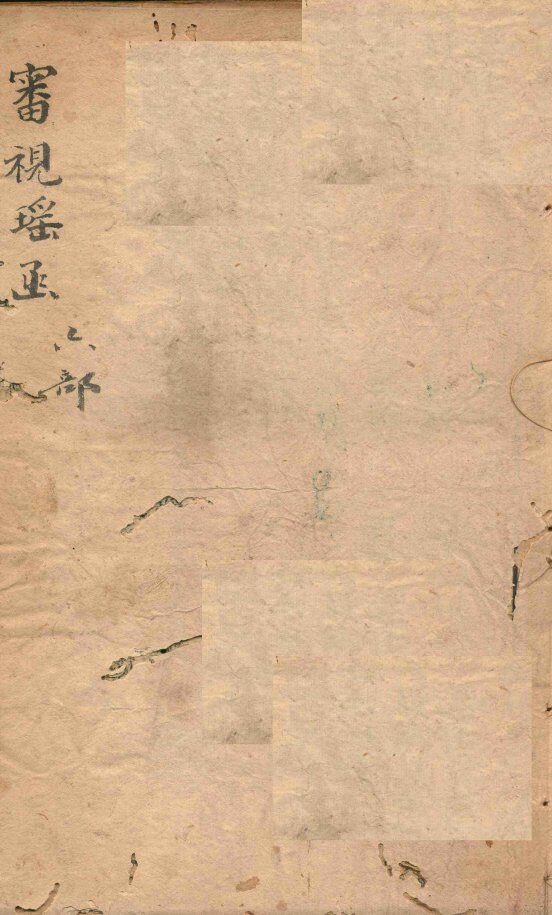 審視瑶函
六部